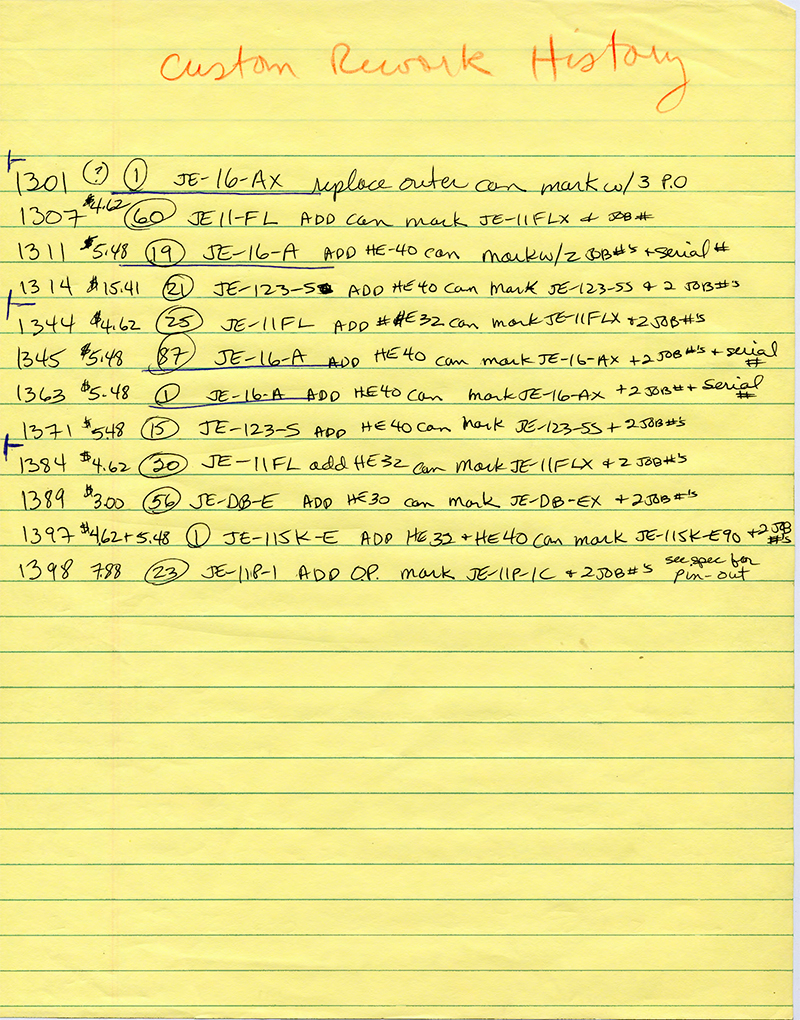 Custom Rework History
1301 (?) 1 JE-16-AX replace outer can mark w/ 3 P.O
1307 $4.62 60 JE11-FL ADD can mark JE-11FLX & JOB#
1311 $5.48 19 JE-16-A ADD HE-40 can mark w/2 JOB#'s + serial #
1314 $15.41 21 JE-123-S ADD HE40 can mark JE-123-SS & 2 JOB#'s
1344 $4.62 25 JE-11FL ADD HE32 can mark JE-11FLX + 2 JOB#'s
1345 $5.48 87 JE-16-A ADD HE40 can mark JE-16-AX + 2 JOB#'s + serial #
1363 $5.48 1 JE-16-A ADD HE40 can mark JE-16-AX + 2 JOB# + serial #
1371 $5.48 15 JE-123-S ADD HE40 can mark JE-123-SS + 2 JOB#'s
1384 $4.62 20 JE-11FL add HE32 can mark JE-11FLX & 2 JOB#'s
1389 $3.00 56 JE-DB-E ADD HE30 can mark JE-DB-EX + 2 JOB#'s
1397 $4.62 + 5.48 1 JE-115K-E ADD HE32 + HE40 can mark JE-115K-E90 + 2 JOB #'s
1398 7.88 23 JE-11P-1 ADD O.P. mark JE-11P-1C & 2 JOB#'s see spec for pin-out